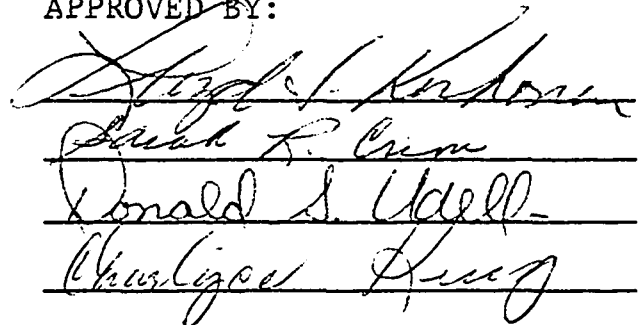 APPROVED BY:
Lloyd J. Korhonen
Sarah R. Crim
Donald S. Udell
Charlyce King